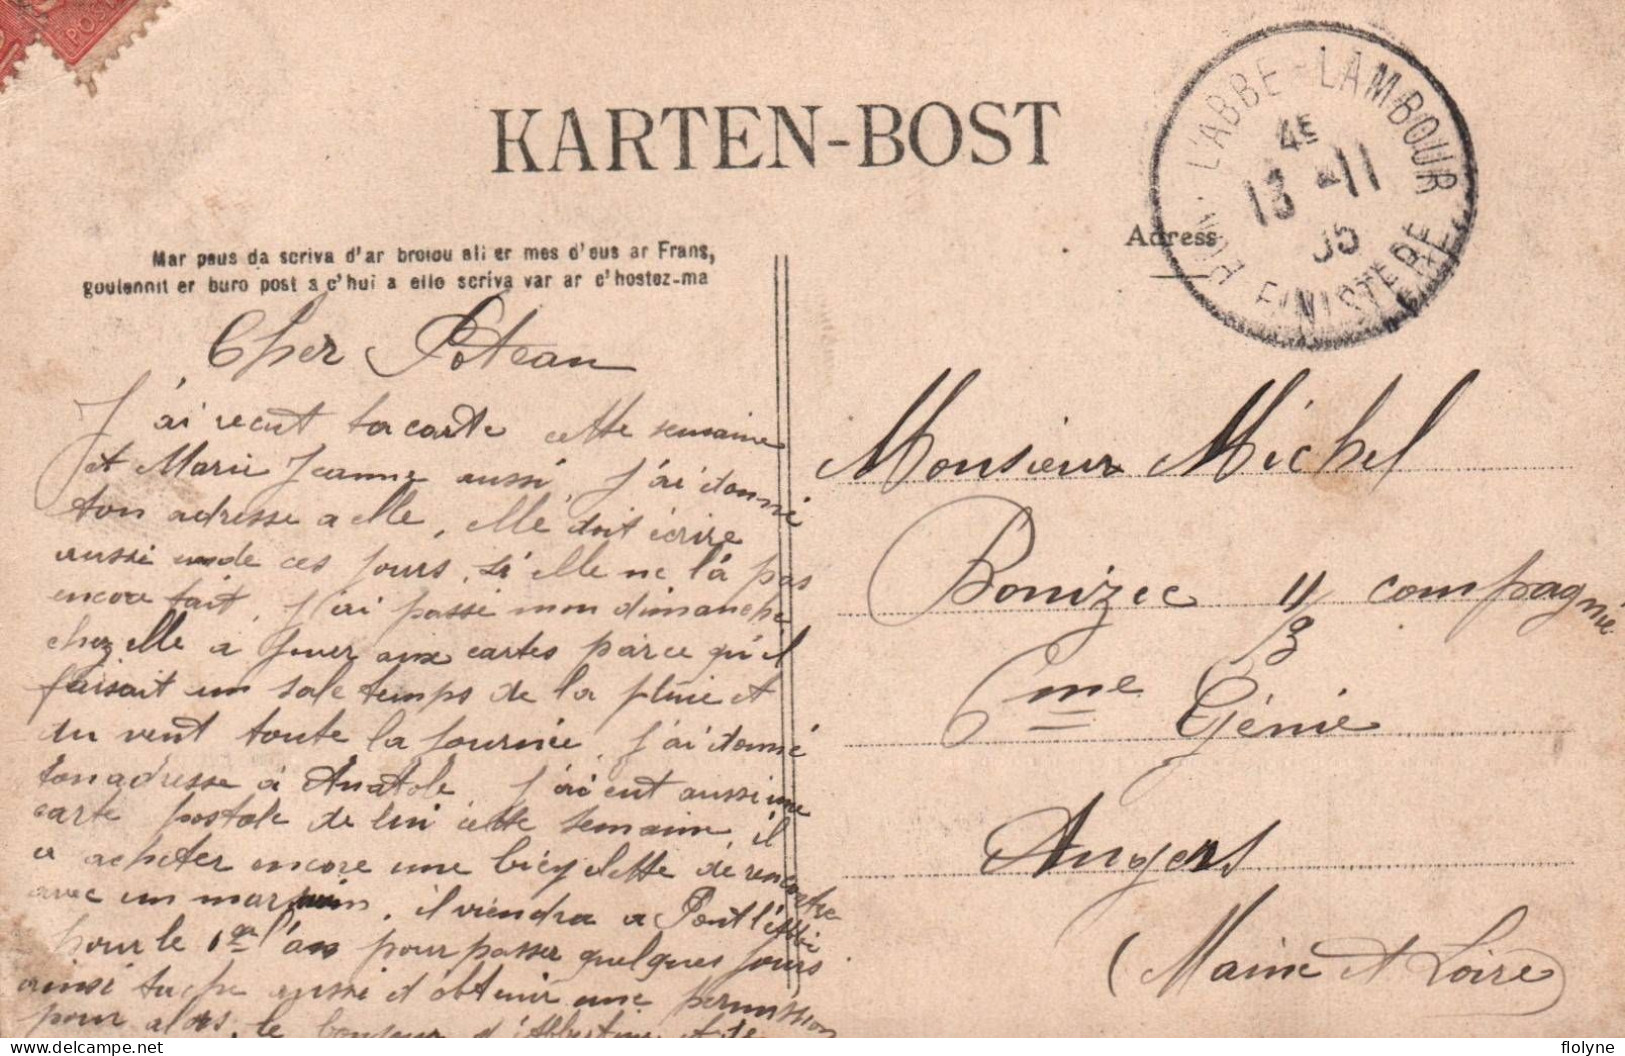 KARTEN-BOST
PONT-L'ABBE-LAMBOUR
4E
13 -11
05
FINISTERE
Mar paus da scriva d'ar broiou all er mes d'eus ar Frans,
goulennit er buro post a c'hui a elle scriva var ar c'hostez-ma
Adress
Cher Poteau
J'ai recut ta carte cette semaine
et Marie Jeanne aussi J'ai donné
ton adresse a elle, elle doit écrire
aussi un de ces jours, si elle ne l'a pas
encore fait, J'ai passé mon dimanche
chez elle a jouer aux cartes parce qu'il
faisait un sale temps de la pluie et
du vent toute la journée, J'ai donné
ton adresse à Anatole J'ai eut aussi une
carte postale de lui cette semaine, il
a acheter encore une bicyclette de rencontre
avec un marin, il viendra a Pont l'Abbé
pour le 1er l'an pour passer quelques jours
ainsi tache aussi d'obtenir une permission
pour alors, le bonjour d'Albertine et de
Monsieur Michel
Bonizec 11 compagnie
B
6me Génie
Angers
(Maine et Loire)
flolyne